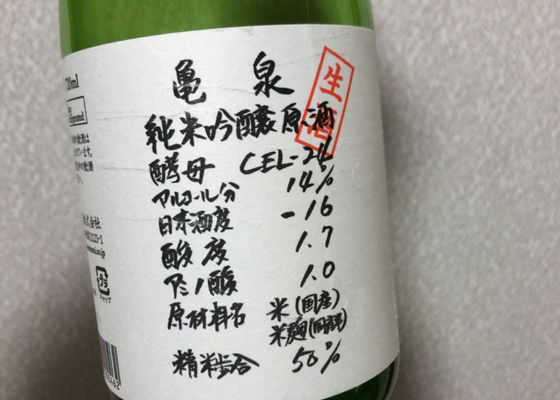 亀泉
生酒
純米吟醸原酒
酵母 CEL-24
アルコール分 14%
日本酒度 -16
酸度 1.7
アミノ酸 1.0
原材料名 米(国産)
米麹(国産)
精米歩合 50%
720ml